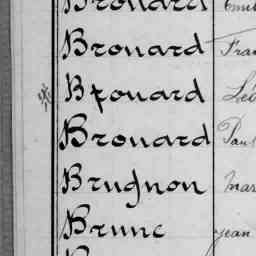 Brouard
Brouard Fra
Brouard Léo
Brouard Paul
Brugnon Mar
Brune Jean